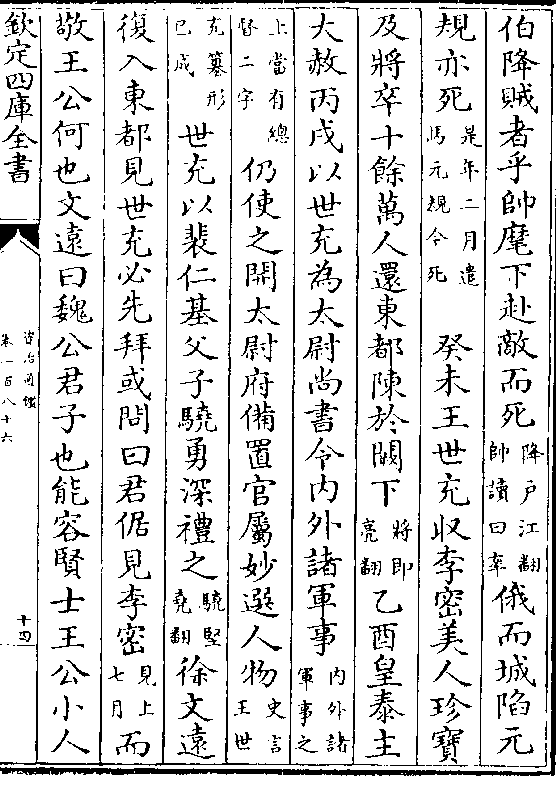 伯降賊者乎帥麾下赴敵而死降戶江翻帥讀曰率俄而城陷元
規亦死是年二月遣馬元規今死 癸未王世充收李密美人珍寶
及將卒十餘萬人還東都陳於闕下將即亮翻乙酉皇泰主
大赦丙戌以世充為太尉尚書令內外諸軍事內外諸軍事之
上當有總督二字仍使之開太尉府備置官屬妙選人物史言王世
充簒形已成世充以裴仁基父子驍勇深禮之驍堅堯翻徐文遠
復入東都見世充必先拜或問曰君倨見李密見上七月而
敬王公何也文遠曰魏公君子也能容賢士王公小人
欽定四庫全書
資治通鑑
卷一百八十六
十四